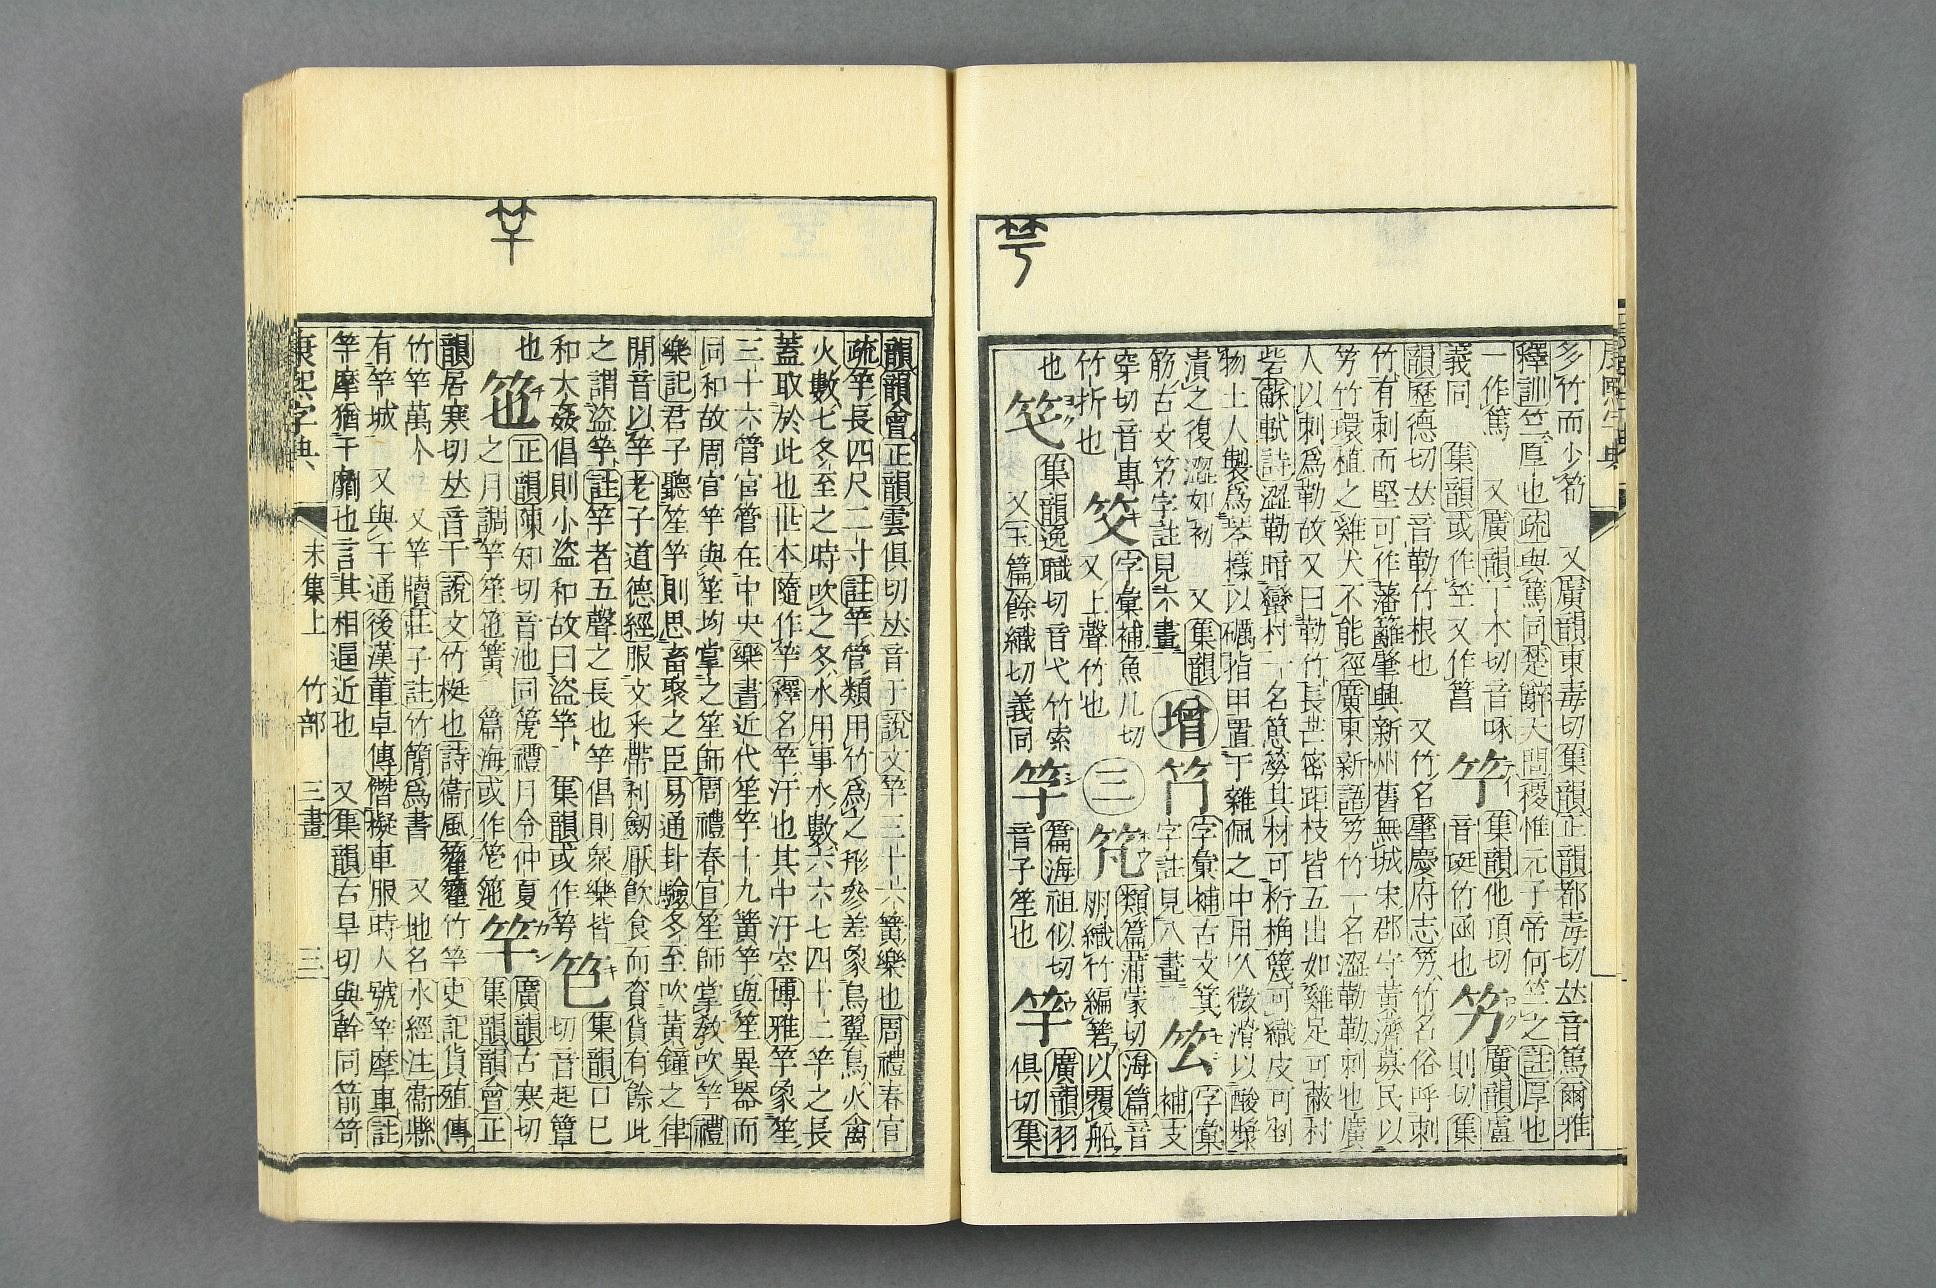 多竹而少筍 又廣韻東毒切集韻正韻都毒切𠀤音篤爾雅
釋訓竺厚也疏與篤同楚辭天問稷惟元子帝何竺之註厚也
一作篤 又廣韻丁木切音啄 竏 集韻他頂切 竻 廣韻盧
義同 集韻或作笁又作篤 音珽竹函也 則切集
韻歷德切𠀤音勒竹根也 又竹名肇慶府志竻竹名俗呼刺
竹有刺而堅可作藩籬肇興新州舊無城宋郡守黃濟募民以
竻竹環植之雞犬不能徑廣東新語竻竹一名澀勒勒刺也廣
人以刺爲勒故又曰勒竹長芒密距枝皆五出如雞足可蔽村
砦蘇軾詩澀勒暗蠻村一名䈡簩其材可桁桷篾可織皮可剉
物土人製爲琴㨾以礪指甲置于雜佩之中用久微滑以酸漿
漬之復澀如初 又集韻
筋古文竻字註見六畫 增 竹 字彙補古文箕 字彙
穿切音專 笅 字彙補魚儿切 字註見八畫 補支
竹折也 又上聲竹也 三 竼 類篇蒲蒙切海篇音
朋織竹編箬以覆船
也 笖 集韻逸職切音弋竹索 竽 篇海祖似切 竽 廣韻羽
又玉篇餘織切義同 音子笙也 俱切集
竽
韻韻會正韻雲俱切𠀤音于說文竽三十六簧樂也周禮春官
疏竽長四尺二寸註竽管類用竹爲之形參差象鳥翼鳥火禽
火數七冬至之時吹之冬水用事水數六六七四十二竽之長
蓋取於此也世本隨作竽釋名竽汙也其中汙空博雅竽象笙
三十六管宮管在中央樂書近代笙竽十九簧竽與笙異器而
同和故周官竽與笙均掌之笙師周禮春官笙師掌敎吹竽禮
樂記君子聽笙竽則思畜聚之臣易通卦驗冬至吹黃鐘之律
閒音以竽老子道德經服文采帶利劒厭飮食而資貨有餘此
之謂盜竽註竽者五聲之長也竽倡則衆樂皆 笆 集韻口巳
和大姦倡則小盜和故曰盜竽 集韻或作䇦 切音起簟
也 竾 正韻陳知切音池同篪禮月令仲夏 竿 廣韻古寒切
之月調竽笙竾簧 篇海或作笔箎 集韻韻會正
韻居寒切𠀤音干說文竹梃也詩衞風籊籊竹竿史記貨殖傳
竹竿萬个 又竿牘莊子註竹簡爲書 又地名水經注衞縣
有竿城 又與干通後漢董卓傳僭擬車服時人號竿摩車註
竿摩猶干𪎭也言其相逼近也 又集韻古旱切與簳同箭笴
康熙字典 未集上 竹部 三畫 三
竿